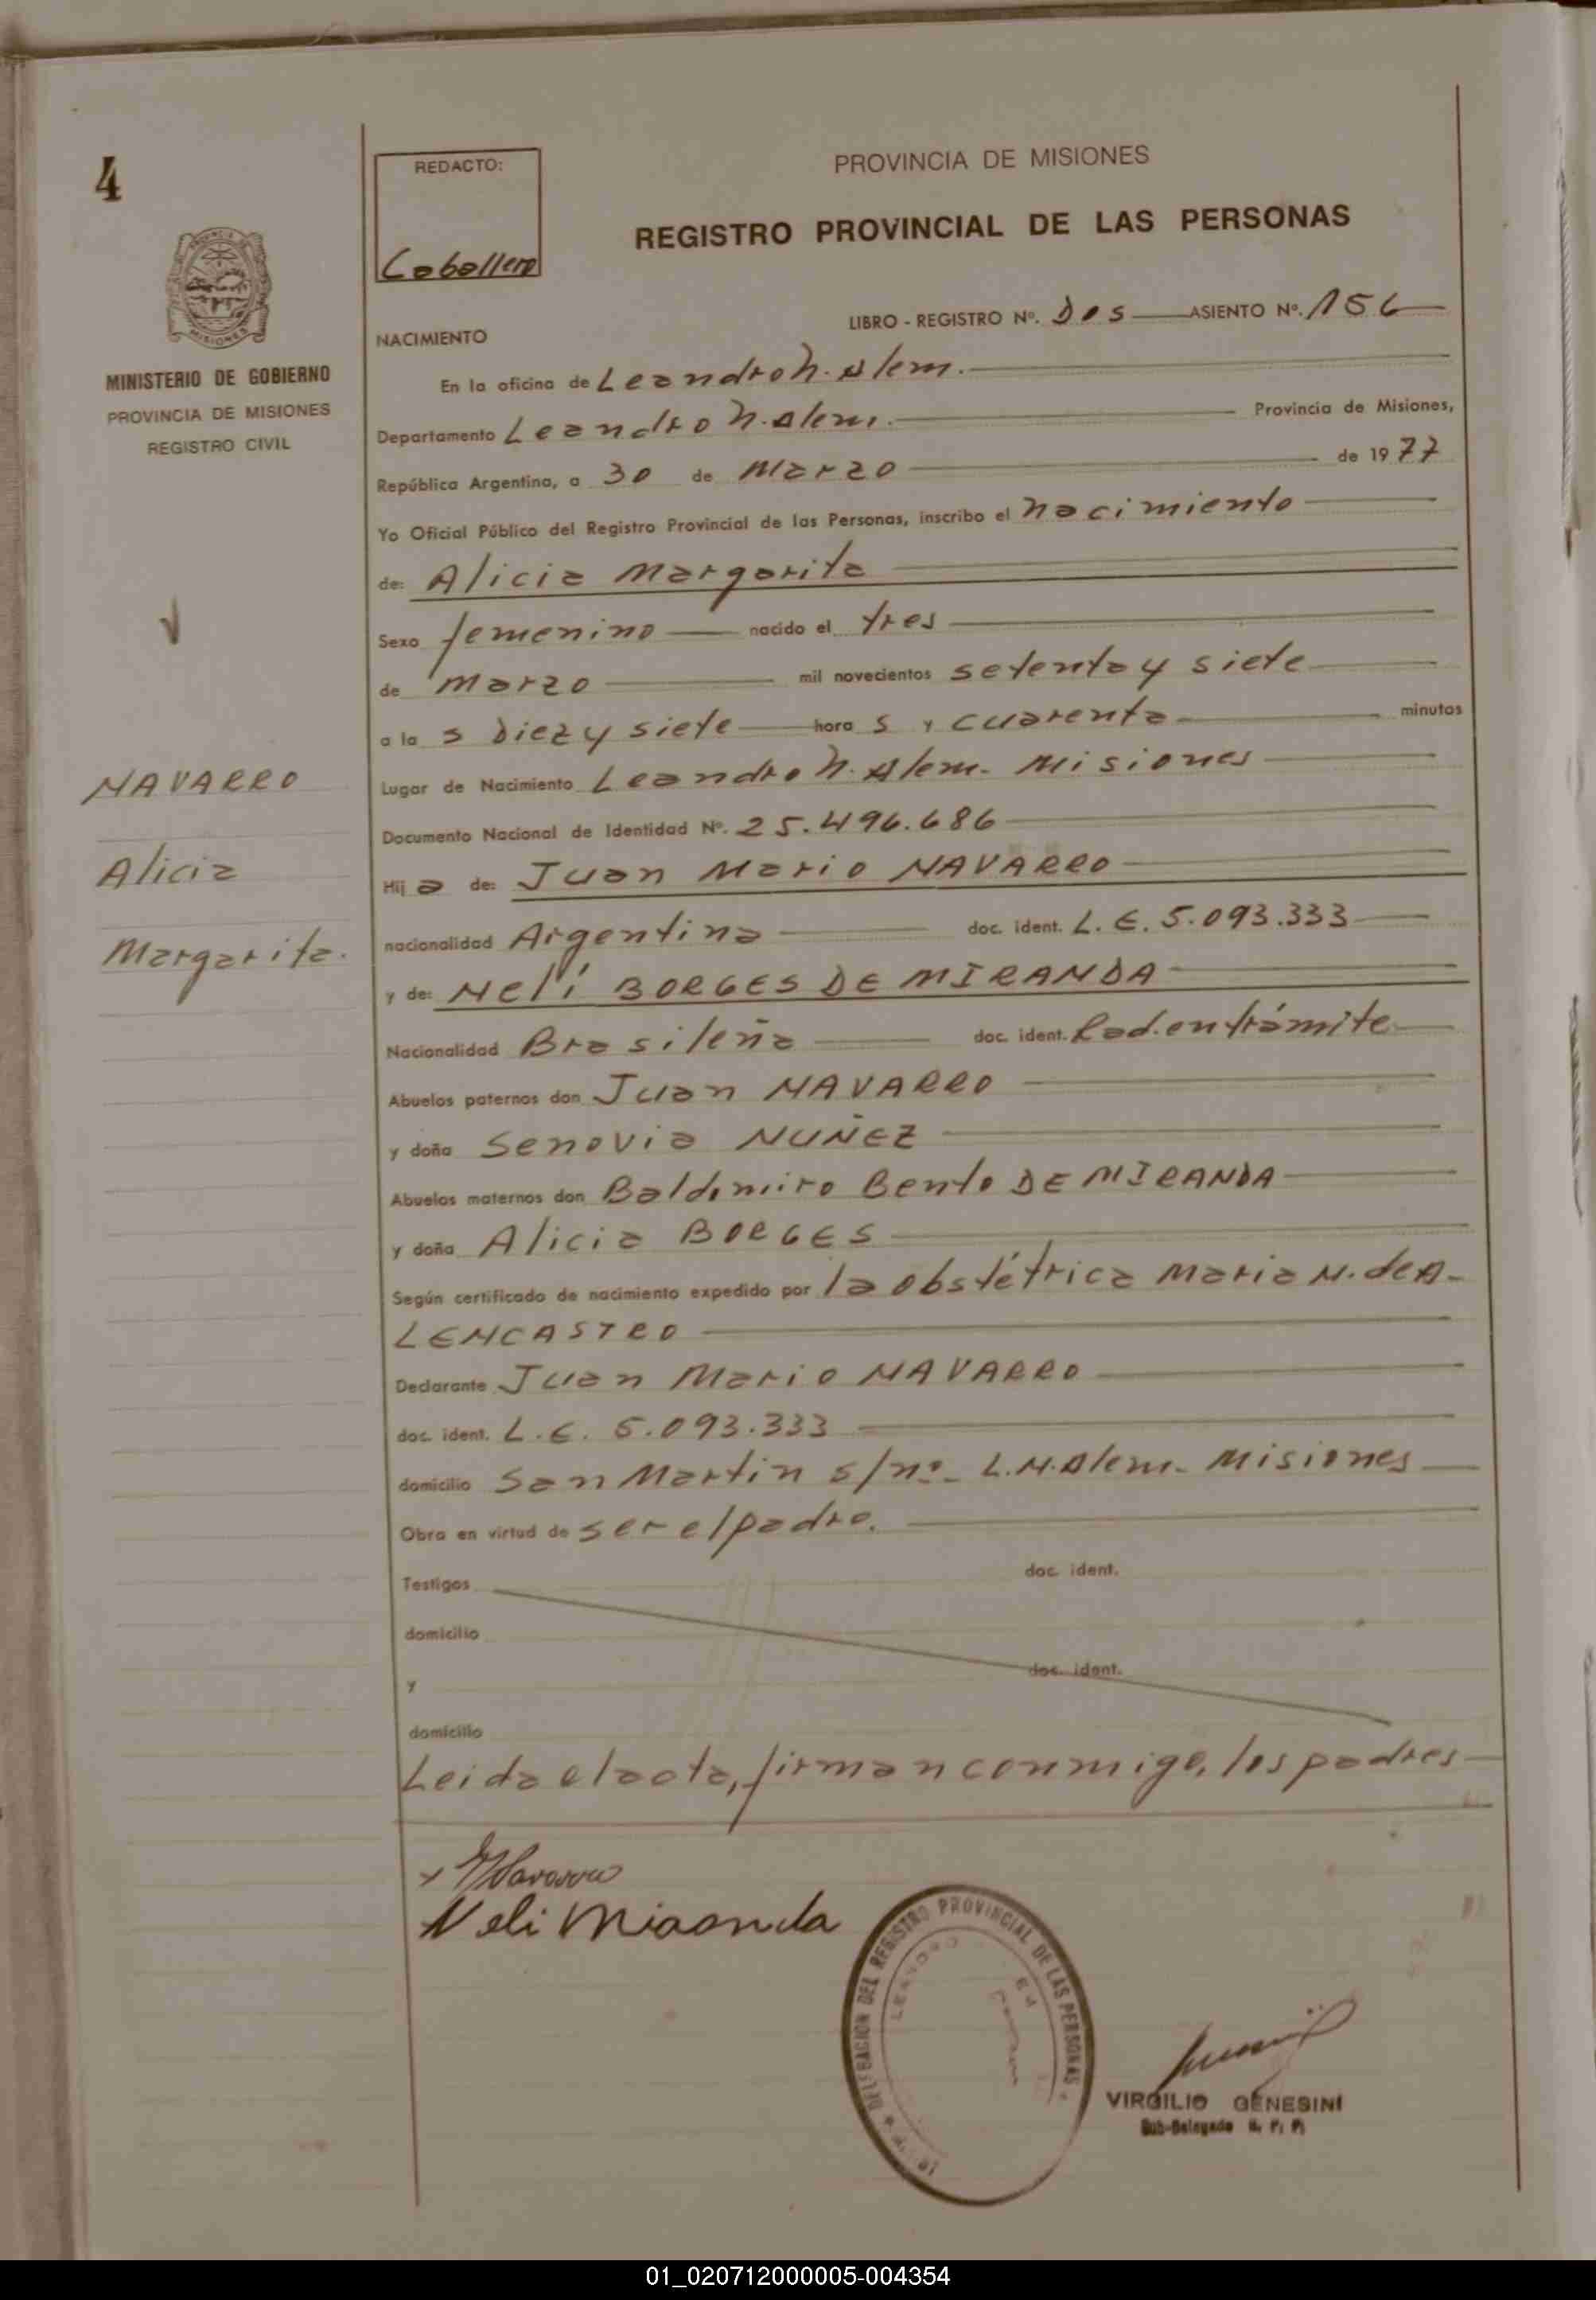 4
REDACTO:
Caballero
PROVINCIA DE MISIONES
REGISTRO PROVINCIAL DE LAS PERSONAS
MINISTERIO DE GOBIERNO
PROVINCIA DE MISIONES
REGISTRO CIVIL
LIBRO - REGISTRO Nº. Dos ASIENTO Nº. 156
NACIMIENTO
En la oficina de Leandro N. Alem.
Departamento Leandro N. Alem. Provincia de Misiones,
República Argentina, a 30 de Marzo de 1977
Yo Oficial Público del Registro Provincial de las Personas, inscribo el nacimiento
de: Alicia Margarita
Sexo femenino nacido el tres
de marzo mil novecientos setenta y siete
a las Diez y siete horas y cuarenta minutos
NAVARRO
Alicia
Margarita.
Lugar de Nacimiento Leandro N. Alem. Misiones
Documento Nacional de Identidad Nº. 25.496.686
Hija de: Juan Mario NAVARRO
nacionalidad Argentina doc. ident. L. E. 5.093.333
y de: Nelí BORGES DE MIRANDA
Nacionalidad Brasileña doc. ident. Rad. en trámite
Abuelos paternos don Juan NAVARRO
y doña Senovia NUÑEZ
Abuelos maternos don Baldomiro Bento DE MIRANDA
y doña Alicia BORGES
Según certificado de nacimiento expedido por la obstétrica Maria N. de A-
LENCASTRO
Declarante Juan Mario NAVARRO
doc. ident. L. E. 5.093.333
domicilio San Martin s/nº- L.N. Alem- Misiones
Obra en virtud de ser el padre.
Testigos doc. ident.
domicilio
y doc. ident.
domicilio
Leida el acta, firman conmigo, los padres
x Navarro
Neli Miranda
DELEGACION DEL REGISTRO PROVINCIAL DE LAS PERSONAS
VIRGILIO GENESINI
Sub-Delegado R. P. P.
01_020712000005-004354